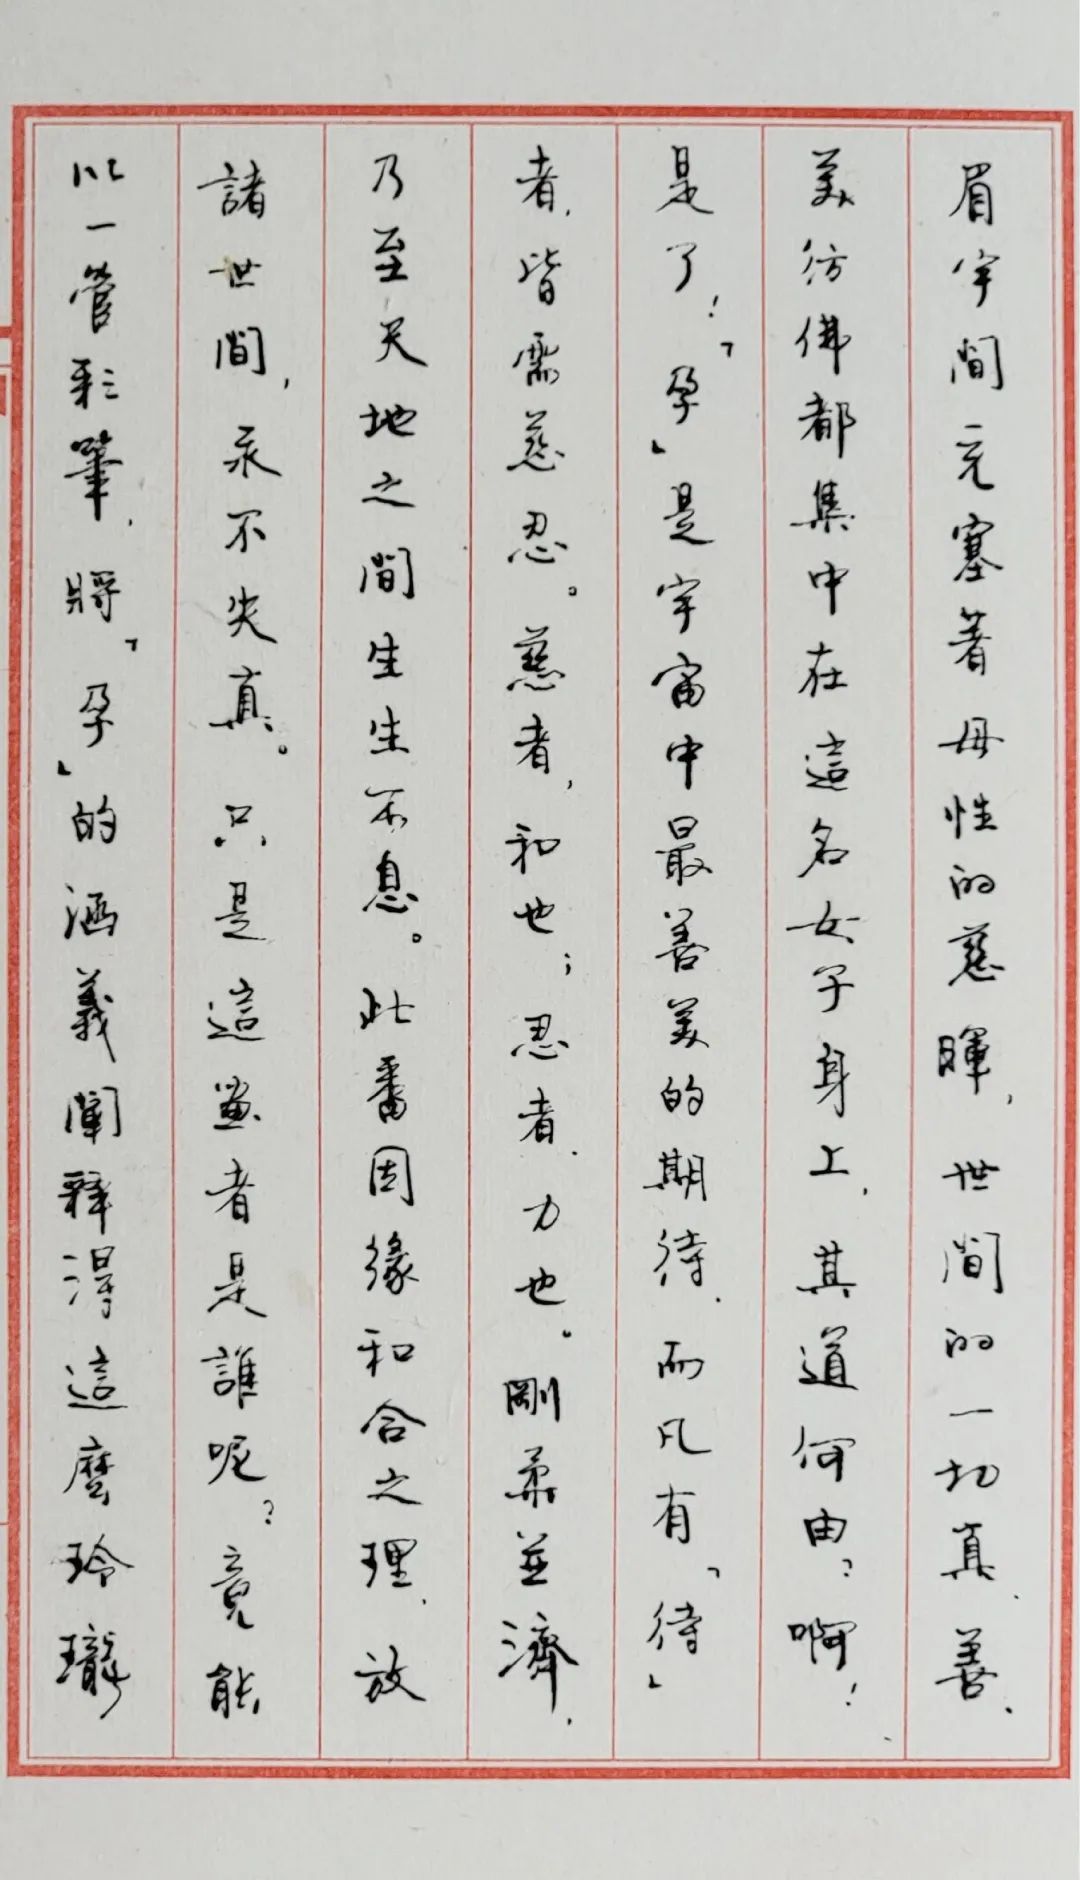 眉宇間充塞著母性的慈暉，世間的一切真、善、
美彷彿都集中在這名女子身上，其道何由？啊！
是了！「孕」是宇宙中最善美的期待，而凡有「待」
者，皆需慈忍。慈者，和也；忍者，力也。剛柔並濟，
乃至天地之間生生不息。此番因緣和合之理，放
諸世間，永不失真。只是這畫者是誰呢？竟能
以一管彩筆，將「孕」的涵義闡釋得這麼玲瓏